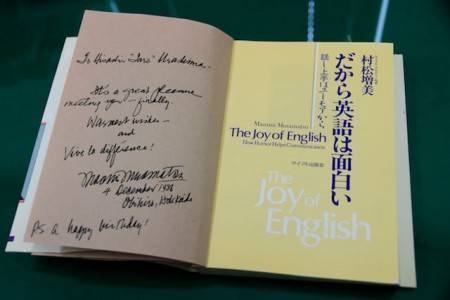 To Hiroshi "Taro" Urashima—
It's a great pleasure
meeting you — finally.
Warmest wishes —
and
Vive la différence!
Masumi Muramatsu
4 December 19
Obihiro, Hokkaido
PS a happy birthday!
村松増美
だから英語は面白い
話し上手はユーモアから
Masumi Muramatsu
The Joy of English
How Humor Helps Communication
サイマル出版会
The
Joy of
English